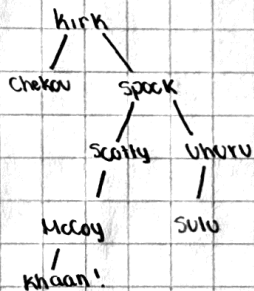 Kirk
Chekov
Spock
Scotty
Uhuru
McCoy
Sulu
Khaan!